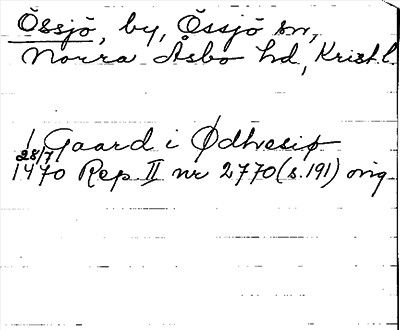 Össjö, by, Össjö sn,
Norra Åsbo hd, Krist.l.
1 Gaard i Ødhvesiø
28/7
1470 Rep. II nr 2770 (s. 191) orig